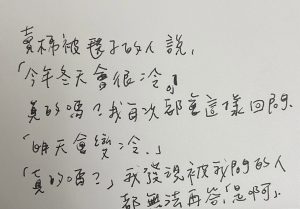 賣棉被毯子的人說，
「今年冬天會很冷。」
真的嗎？我每次都會這樣回問。
「明天會變冷。」
「真的嗎？」我發現被我問的人
都無法再答「是啊」。